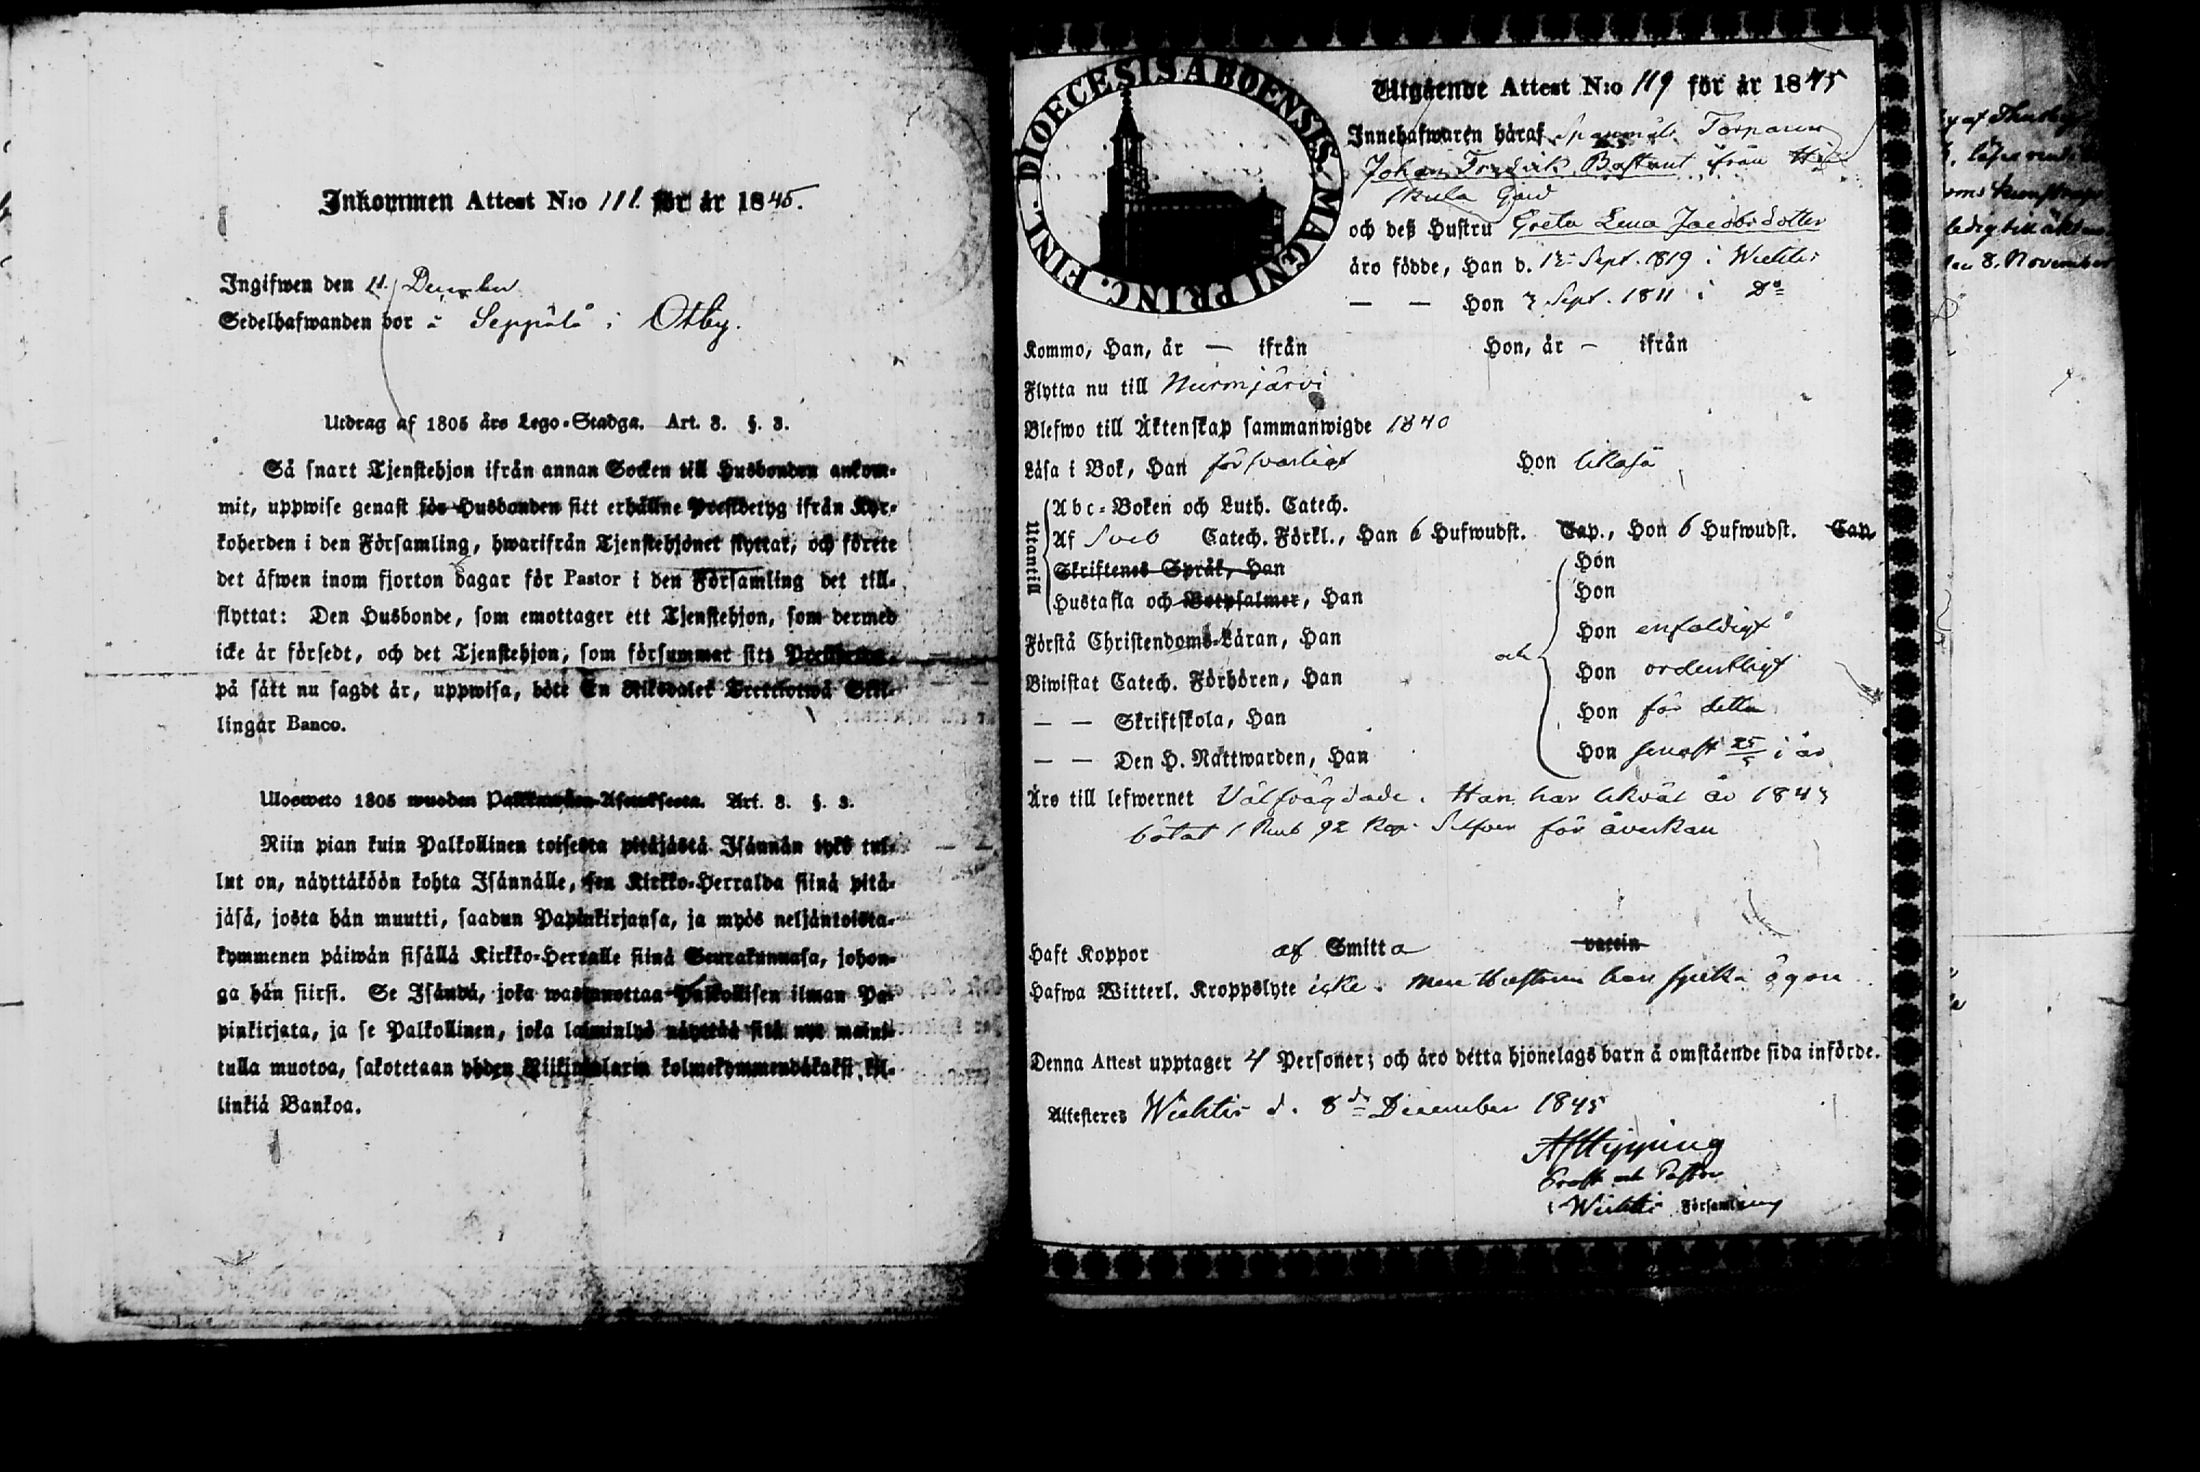 Inkommen Attest N:o 111. för år 1845.
Ingifwen den 11 December
Sedelhafwanden bor å Seppälä i Otby.
Utdrag af 1805 års Lego-Stadga. Art. 3. §. 3.
Så snart Tjenstehjon ifrån annan Socken till Husbonden ankom-
mit, uppwise genast för Husbonden sitt erhållne Prestbetyg ifrån Kyr-
koherden i den Församling, hwarifrån Tjenstehjonet flyttat, och förete
det äfwen inom fjorton dagar för Pastor i den Församling det till-
flyttat: Den Husbonde, som emottager ett Tjenstehjon, som dermed
icke är försedt, och det Tjenstehjon, som försummar sitt
på sätt nu sagdt är, uppwisa, böte En Riksdaler Trettiotwå Skil-
lingar Banco.
Ulosweto 1805 wuoden Palkkawäen-Asetuksesta. Art. 3. §. 3.
Niin pian kuin Palkollinen toisesta pitäjästä Isännän tykö tul-
lut on, näyttäköön kohta Isännälle, sen Kirkko-Herralda siinä pitä-
jäsä, josta hän muutti, saadun Papinkirjansa, ja myös neljäntoista-
kymmenen päiwän sisällä Kirkko-Herralle siinä Seurakunnasa, johon-
ga hän siirsi. Se Isändä, joka wastaanottaa Palkollisen ilman Pa-
pinkirjata, ja se Palkollinen, joka laiminlyö näyttää sitä nyt mainit-
tulla muotoa, sakotetaan yhden Riikintalarin kolmekymmendäkaksi kil-
linkiä Bankoa.
DIOECESIS ABOENSIS MAGNI PRINC. FINL.
Utgående Attest N:o 119 för år 1845
Innehafwaren häraf Torparen
Johan Fredrik från
Gård
och deß Hustru Greta Lena Jacobsdotter
äro födde, Han d. 12 Sept. 1819 i Wichtis
— — Hon 3 Sept. 1811 i Do
Kommo, Han, år — ifrån Hon, år — ifrån
Flytta nu till Nurmijärvi
Blefwo till Äktenskap sammanwigde 1840
Läsa i Bok, Han försvarligt Hon likaså
Utantill
Abc-Boken och Luth. Catech.
Af Sveb Catech. Förkl., Han 6 Hufwudst. Cap., Hon 6 Hufwudst. Cap.
Skriftenes Språk, Han Hon
Hustafla och Botpsalmer, Han Hon
Förstå Christendoms-Läran, Han Hon enfaldigt
och
Biwistat Catech. Förhören, Han Hon ordentligt
— — Skriftskola, Han Hon för detta
— — Den H. Nattwarden, Han Hon senast 25/5 i år
Äro till lefwernet Välfrägdade. Han har likväl år 1843
bötat 1 Rub 92 Kop. Silfver för åverkan
Haft Koppor af Smitta vaccin
Hafwa Witterl. Kroppslyte icke. Men Hustrun har sjuka ögon
Denna Attest upptager 4 Personer; och äro detta hjonelags barn å omstående sida införde.
Attesteres Wichtis d. 8de December 1845
AFHipping
Prost och Pastor
i Wichtis Församling
af Thusby
ledig till äkten
den 8. November